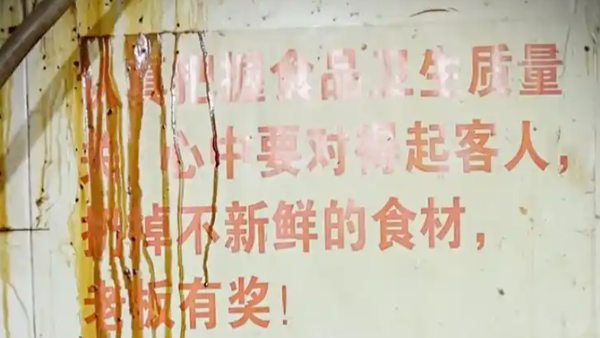 认真把握食品卫生质量
关 心中要对得起客人，
扔掉不新鲜的食材，
老板有奖！